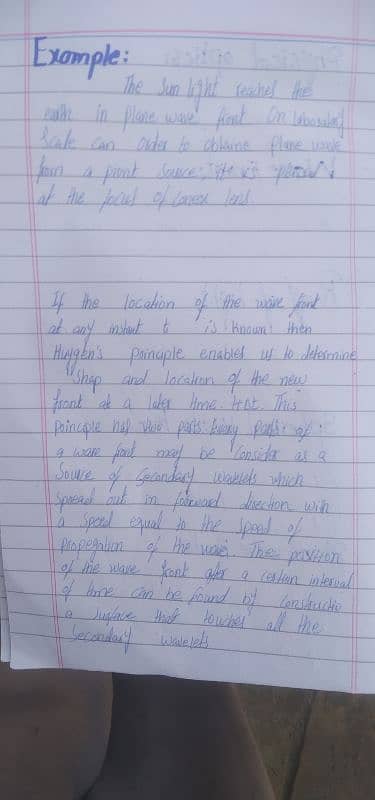 Example:
The Sun light reachel the
earth in plane wave front On laborarity
Scale can order to obtaine plane wave
from a piont source, it is placed
at the focus of conex lens
If the location of the wave front
at any instant t is known then
Huygen's poinciple enables us to determine
Shap and location of the new
front at a later time t+Δt. This
poinciple has two parts: Every parts of
a wave font may be consider as a
Source of Secondary wavelets which
spread out in forward direction with
a speed equal to the speed of
propegation of the wave. The position
of the wave front after a certan interval
of time can be found by constructio
a surface that touches all the
Secondary wavelets